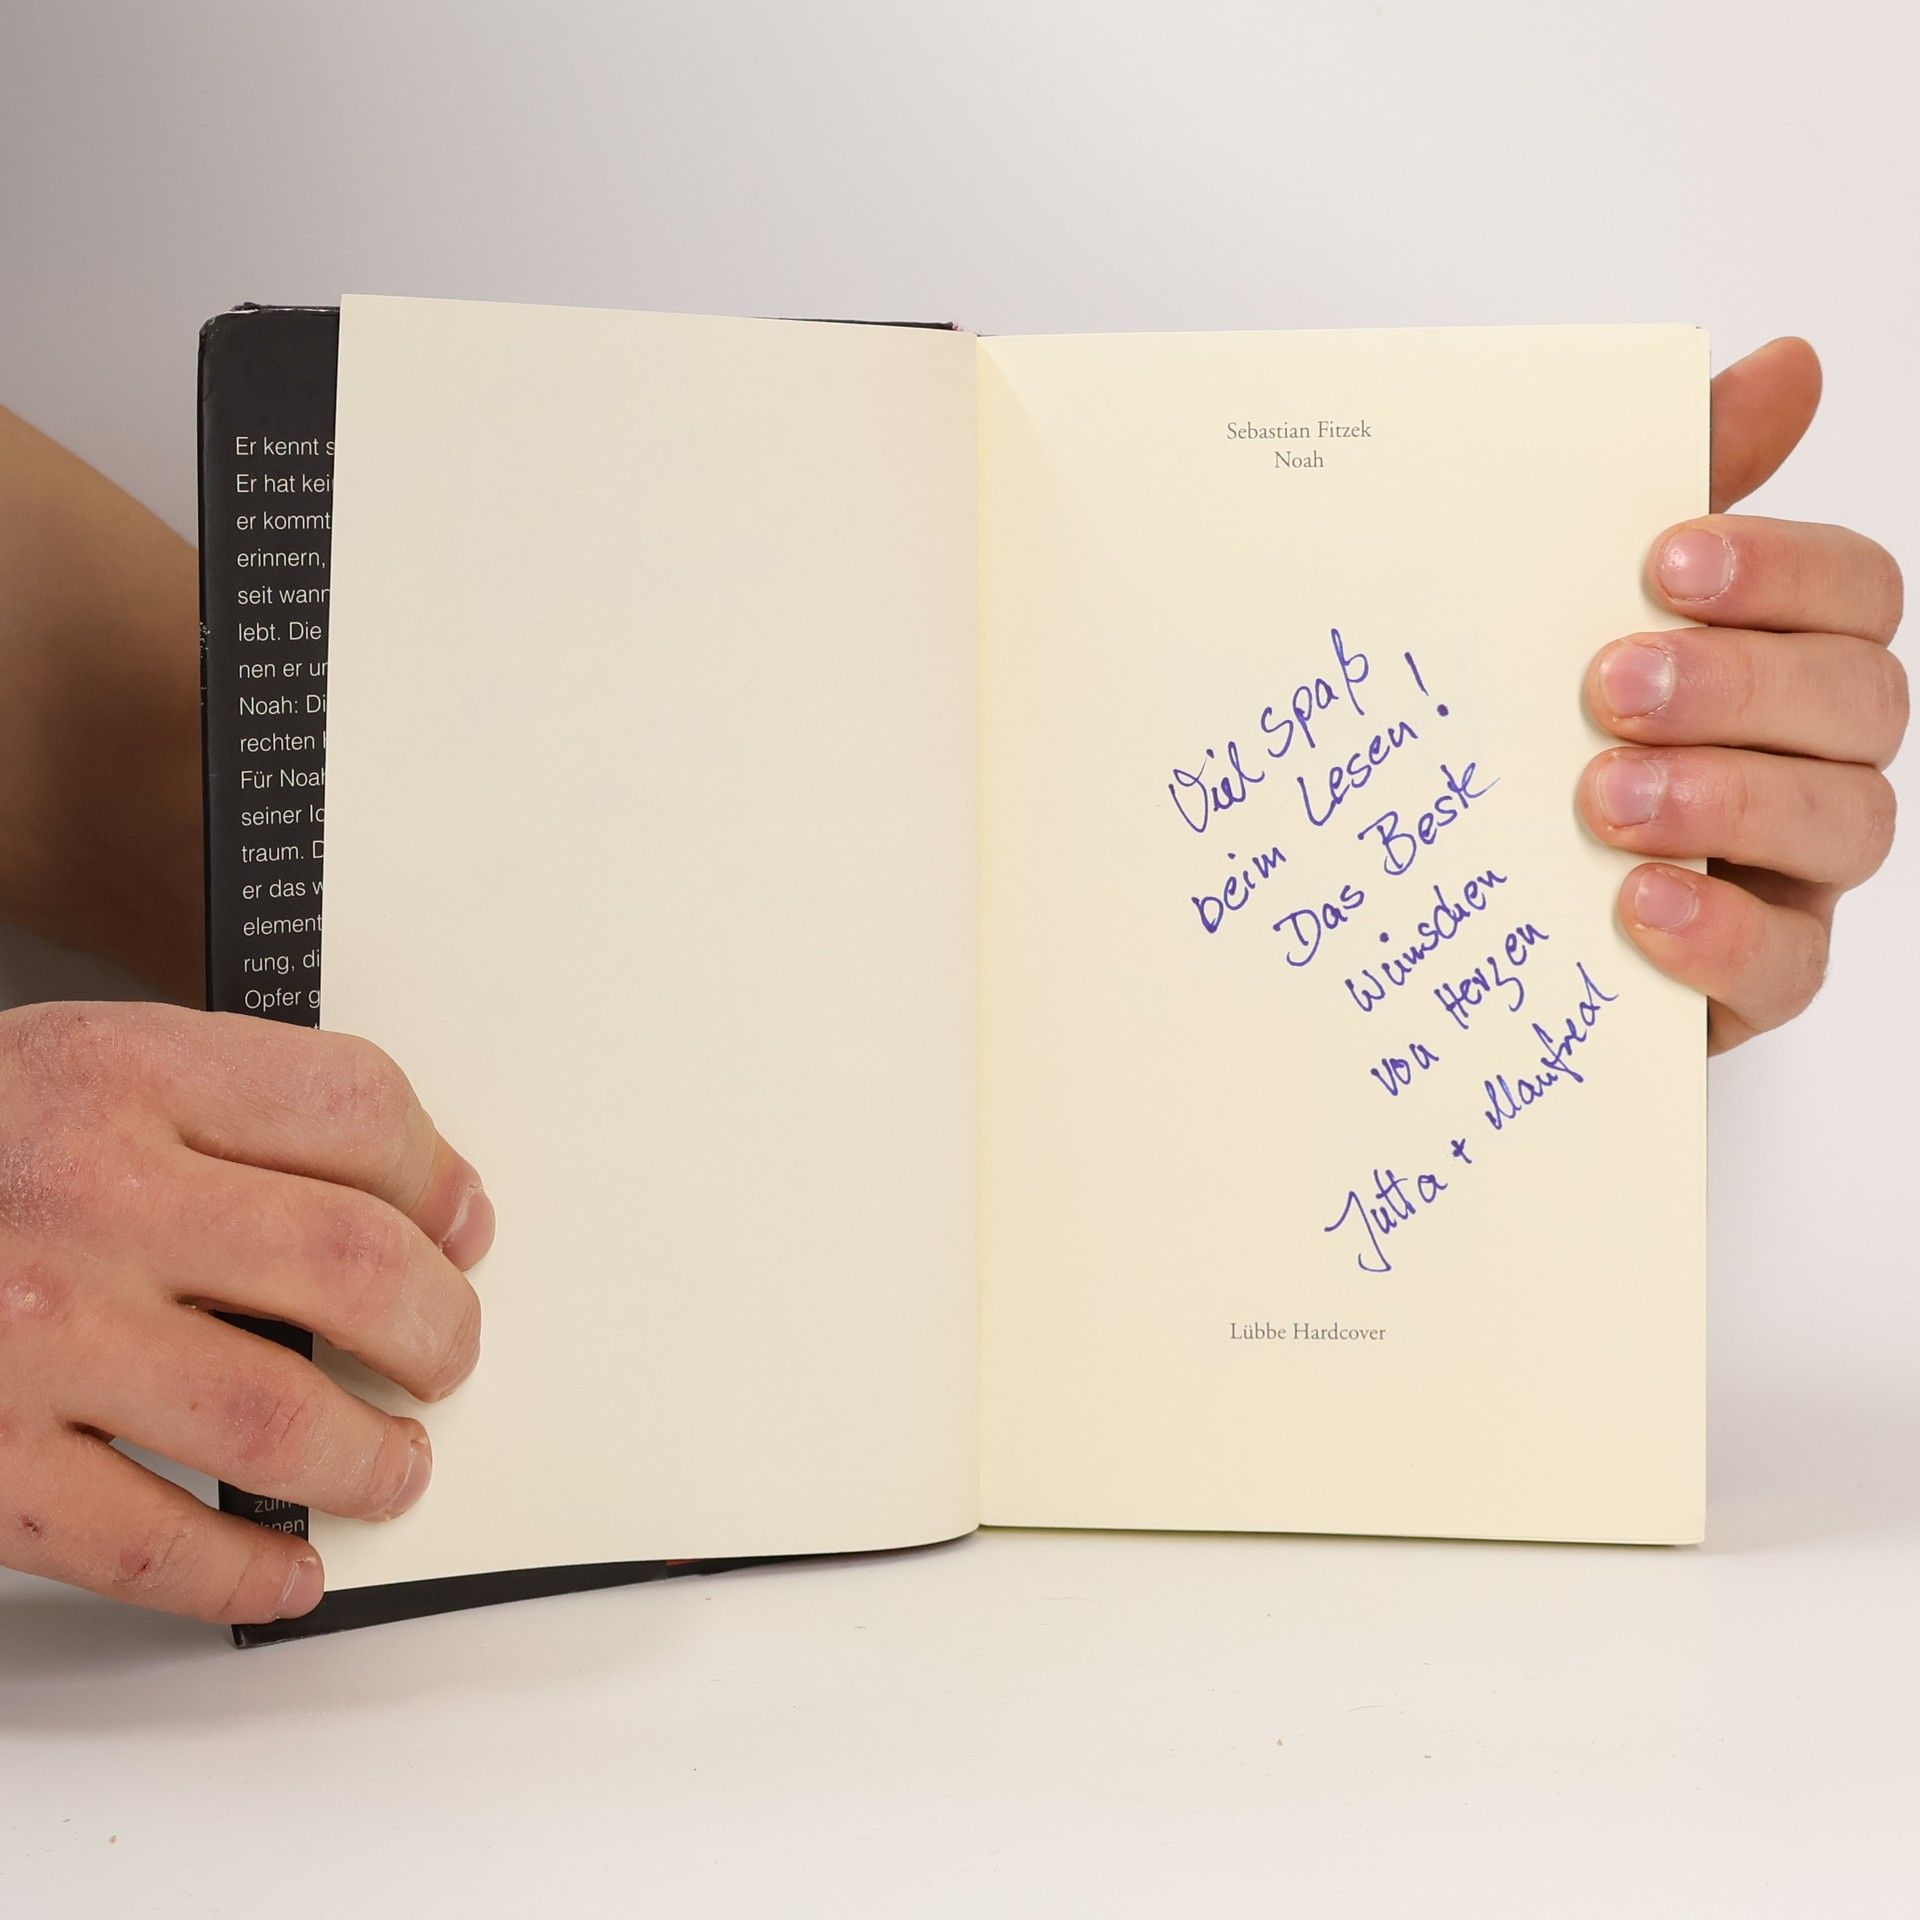 Er kennt s
Er hat kei
er kommt
erinnern,
seit wann
lebt. Die
nen er un
Noah: Di
rechten
Für Noah
seiner Id
traum. D
er das w
element
rung, di
Opfer g
zum
nen
Sebastian Fitzek
Noah
Viel Spaß
beim Lesen!
Das Beste
wünschen
von Herzen
Jutta + Manfred
Lübbe Hardcover